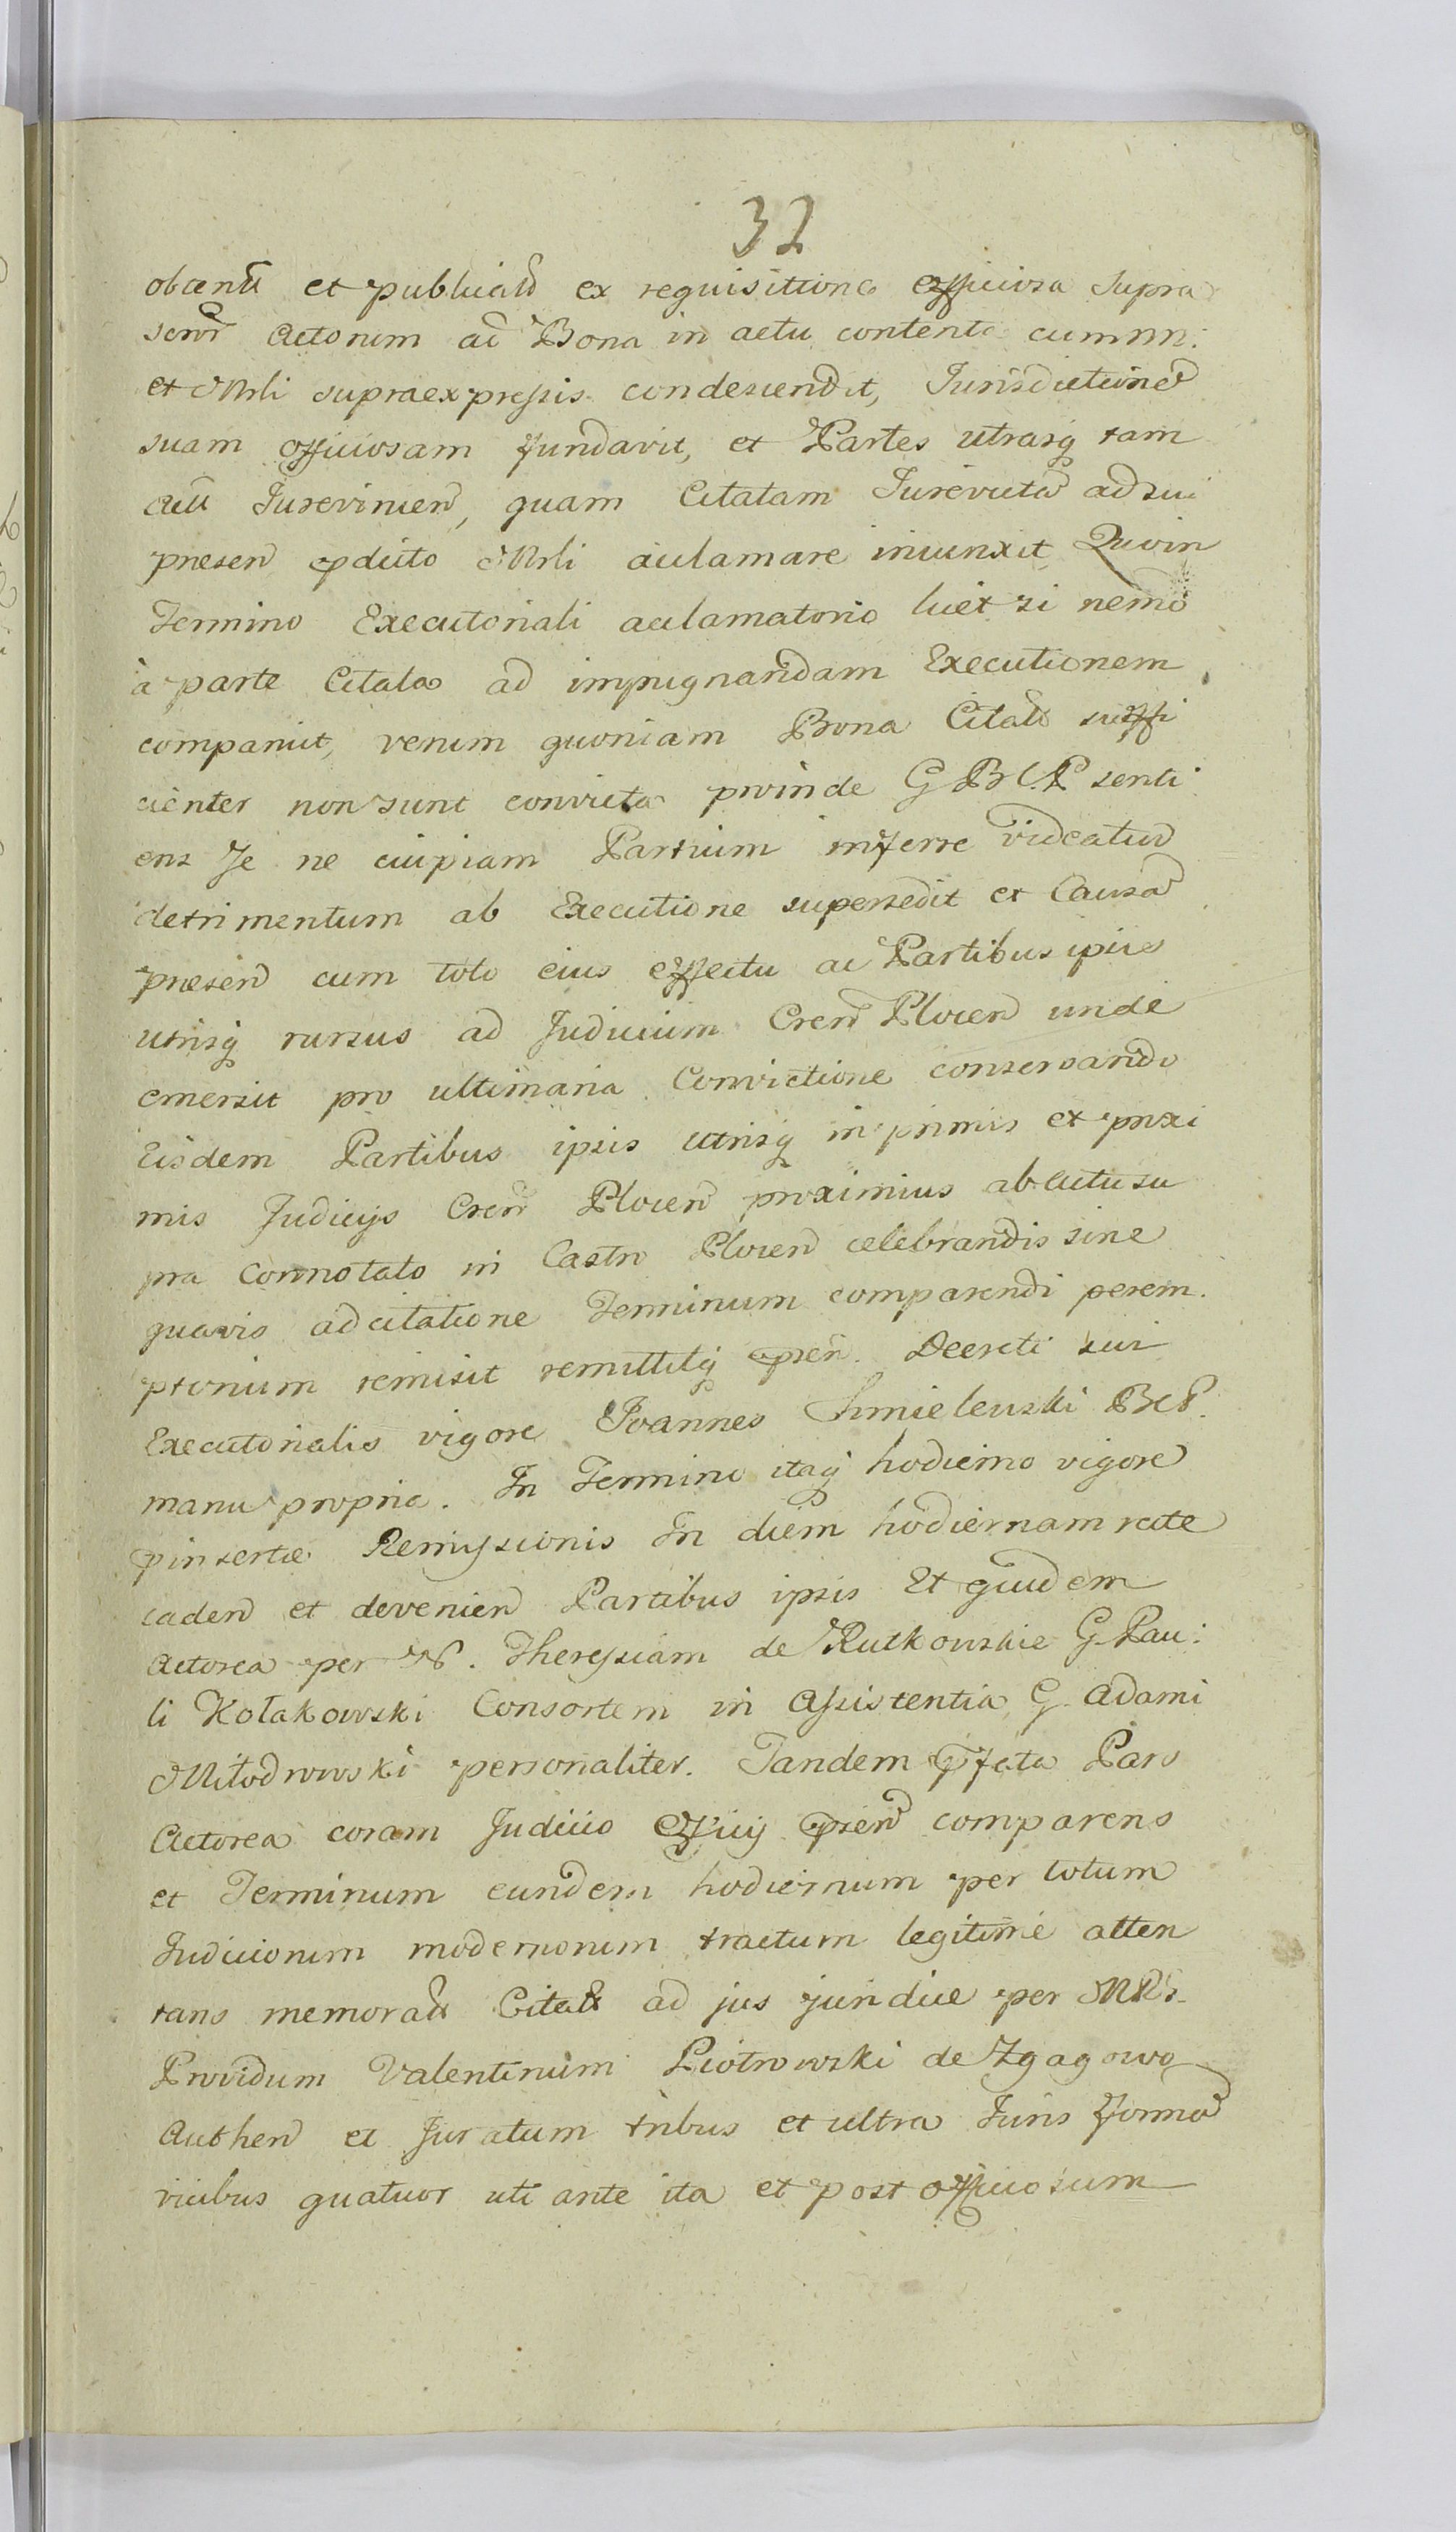 32
obtentu et publicatu ex requisitione officiosa supra
script Actorum ad Bona in actu contenta cum nn:
et Mrli supraexpressis condescendit, Jurisdictione
suam officiosam fundavit, et Partes utrasq tam
actu Jurevincen, quam Citatam Jurevicta ad sui
presen pdicto Mrli acclamare iniunxit Quo in
Termino Executoriali acclamatorio licet si nemo
à parte Citata ad impugnandam Executionem
comparuit, verum quoniam Bona Citato suffi
cienter non sunt convicta proinde G B C. P senti
ens Je ne cuipiam Partium inferre videatur
detrimentum ab Executione supersedit et Causa
presen cum toto eius effectu ac Partibus ipsis
utrisq rursus ad Judicium Cren Plocen unde
emersit pro ultimaria Convictione conservando
Eisdem Partibus ipsis utrisq in primis et proxi
mis Judicijs Cren Plocen proximius ab Actu su
pra Connotato in Castro Plocen celebrandis sine
quavis adcitatione Terminum comparendi perem
ptorium remisit remittitq psen. Decreti sui
Executorialis vigore Joannes Chmielewski B C P.
manu propria. In Termino itaq hodierno vigore
pinsertæ Remissionis In diem hodiernam recte
caden et devenien Partibus ipsis Et quidem
Actorea per N. Theressiam de Rutkowskie G. Pau:
li Kołakowski Consortem in Assistentia G. Adami
Miłodrowski personaliter. Tandem pfata Pars
Actorea coram Judicio Officij psen comparens
et Terminum eundem hodiernum per totum
Judiciorum modernorum tractum legitimè atten
tans memorat Citat ad jus juridice per MRS
Providum Valentinum Piotrowski de Zgagowo
Authen et Juratum tribus et ultra Juris forma
vicibus quatuor uti ante ita et post officiosum